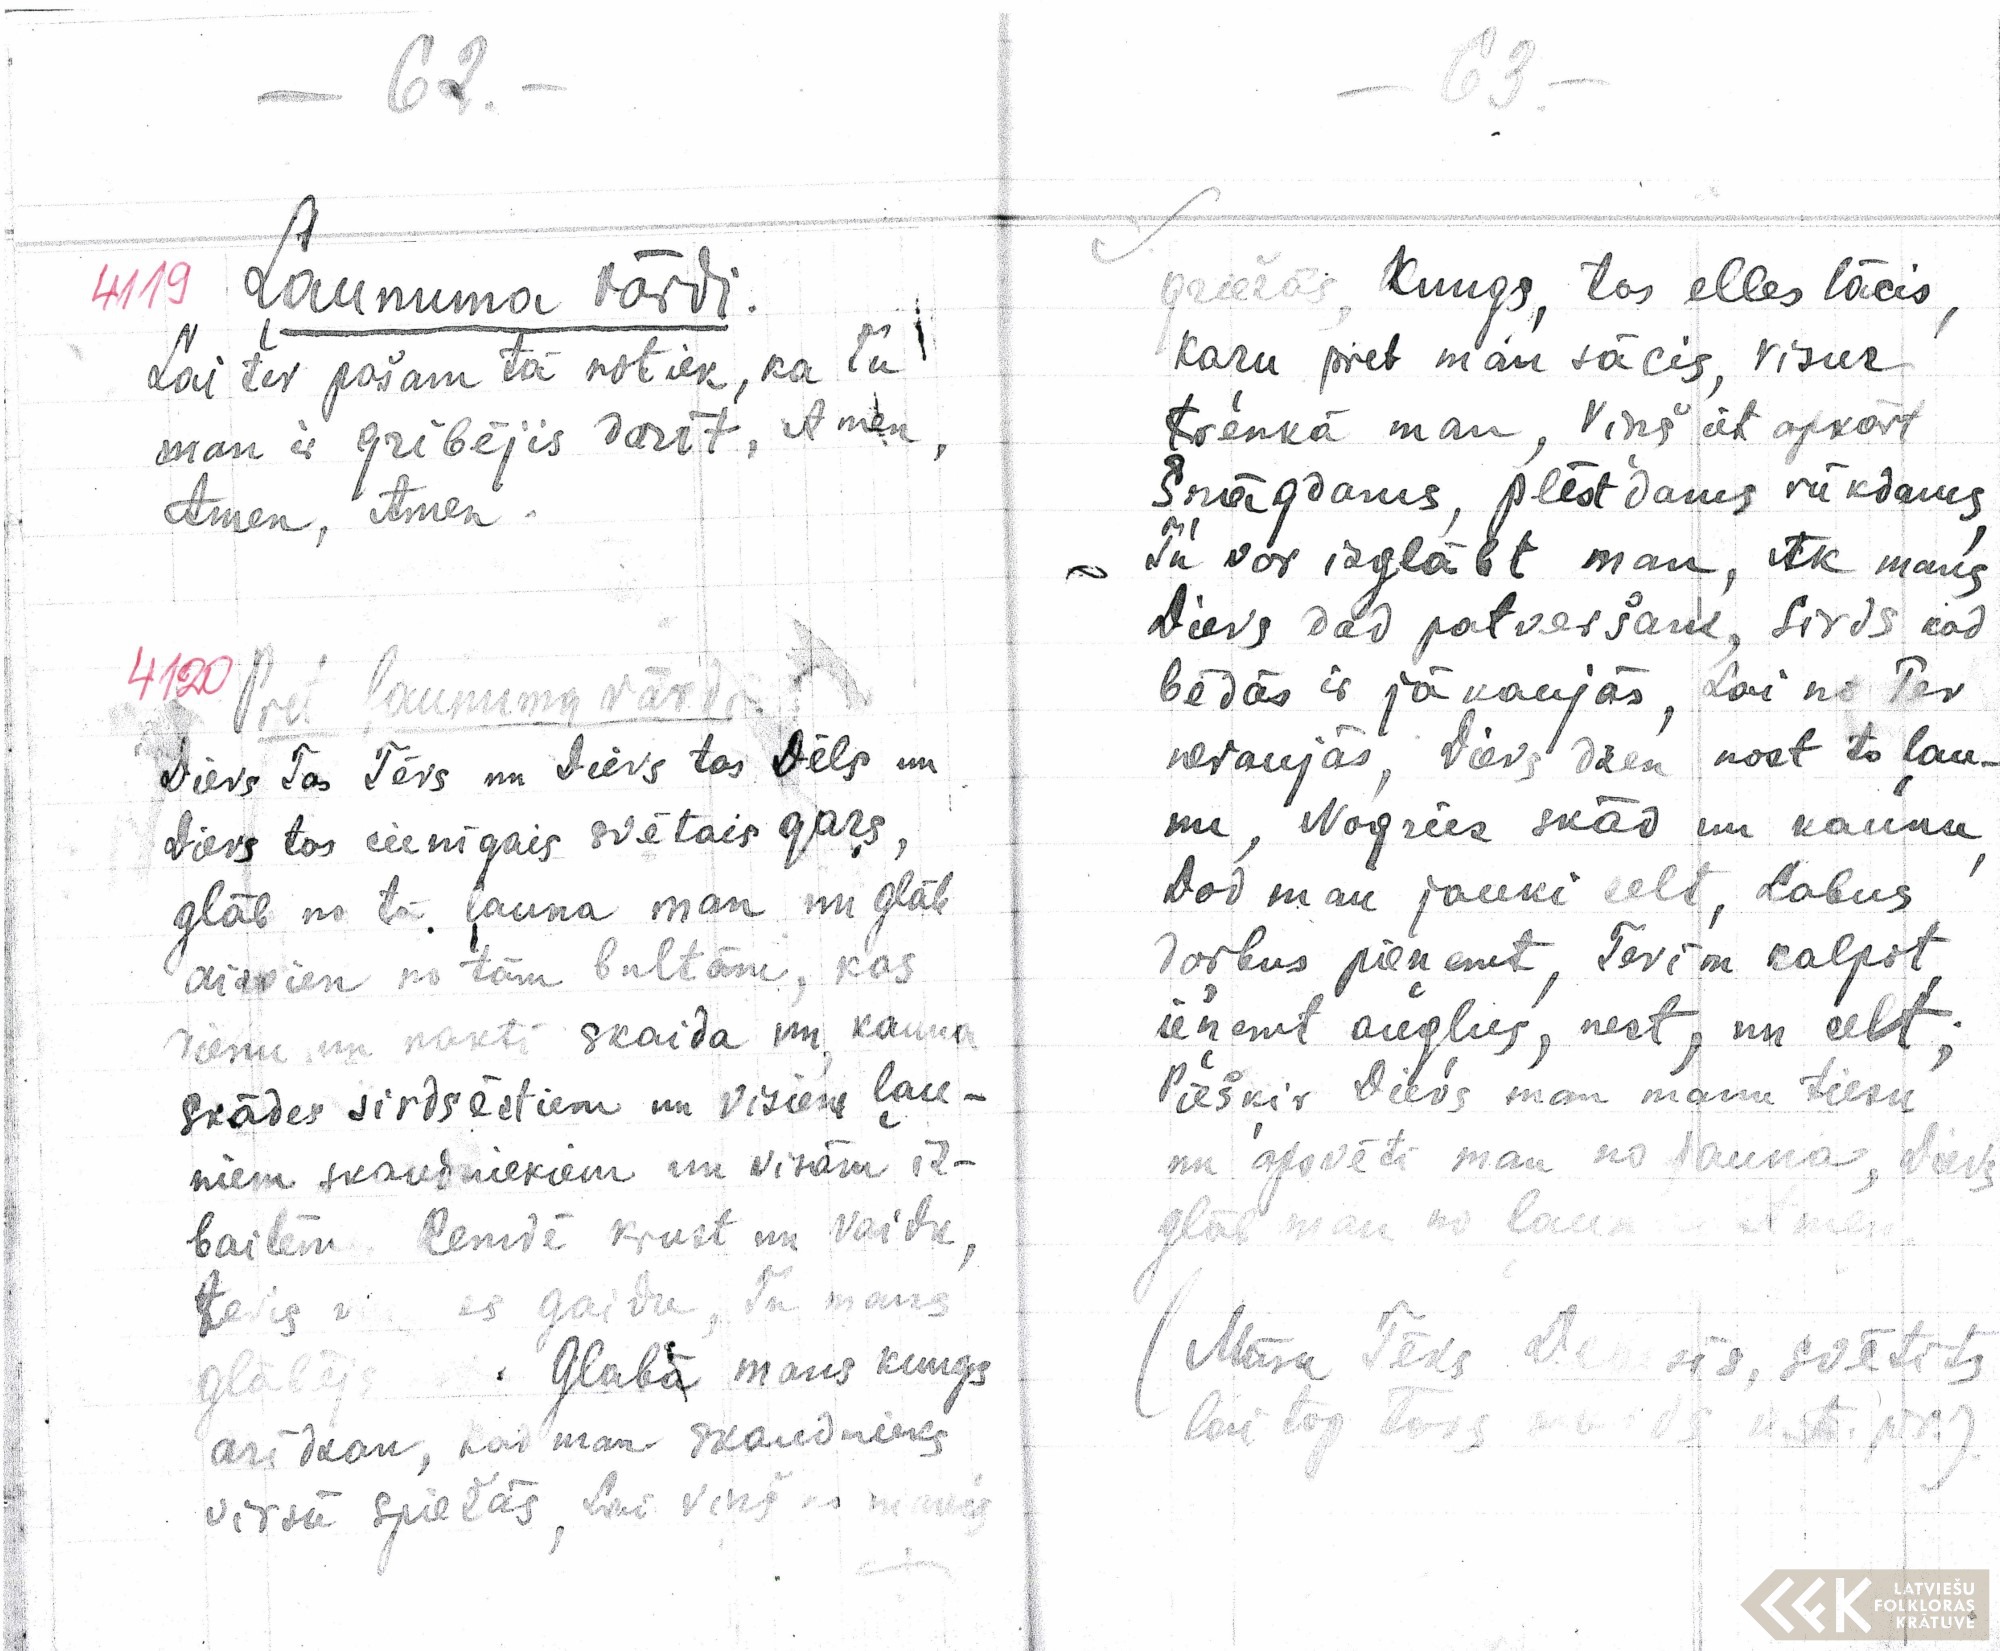 — 62. —
4119 Ļaunuma vārdi.
Lai tev pašam tā notiek, ka Tu
man ir gribējis darīt, Amen,
Amen, Amen.
4120 Pret ļaunuma vārdi.
Dievs Tas Tēvs un Dievs tas Dēls un
Dievs tas cienīgais svētais gars,
glāb no tā ļauna man un glāb
aizvien no tām bultām, kas
dienu un nakti skaida un kauna
skādes sirdsēstiem un visiem ļau-
niem skaudniekiem un visām iz-
bailēm. Remdē krust un vaidu,
tevis es gaidu, Tu mans
glābējs. Glabā mans kungs
arīdzan, kad man skaudnieks
virsū spiežās, Lai viņš no manis
— 63. —
griežās, Kungs, tas elles lācis,
karu pret man sācis, visur
trenkā man, Viņš iet apkārt
šņāgdams, plēsdams rūkdams,
Tu var izglābt man, Ak mans
Dievs dod patveršanu, Sirds kad
bēdās ir jākaujās, Lai no Tev
neraujās, Dievs dzen nost to ļau-
nu, Nogriez skād un kaunu,
Dod man jauki celt, Labus
darbus pieņemt, Tevim kalpot,
ieņemt augļus, nest, un celt;
Piešķir Dievs man manu tiesu
un apsvētī man no ļauna, Dievs
glāb man no ļauna Amen
(Mūsu Tēvs Debesīs, svētīts
lai top Tavs vārds u.t. pr.)
LATVIEŠU
FOLKLORAS
KRĀTUVE